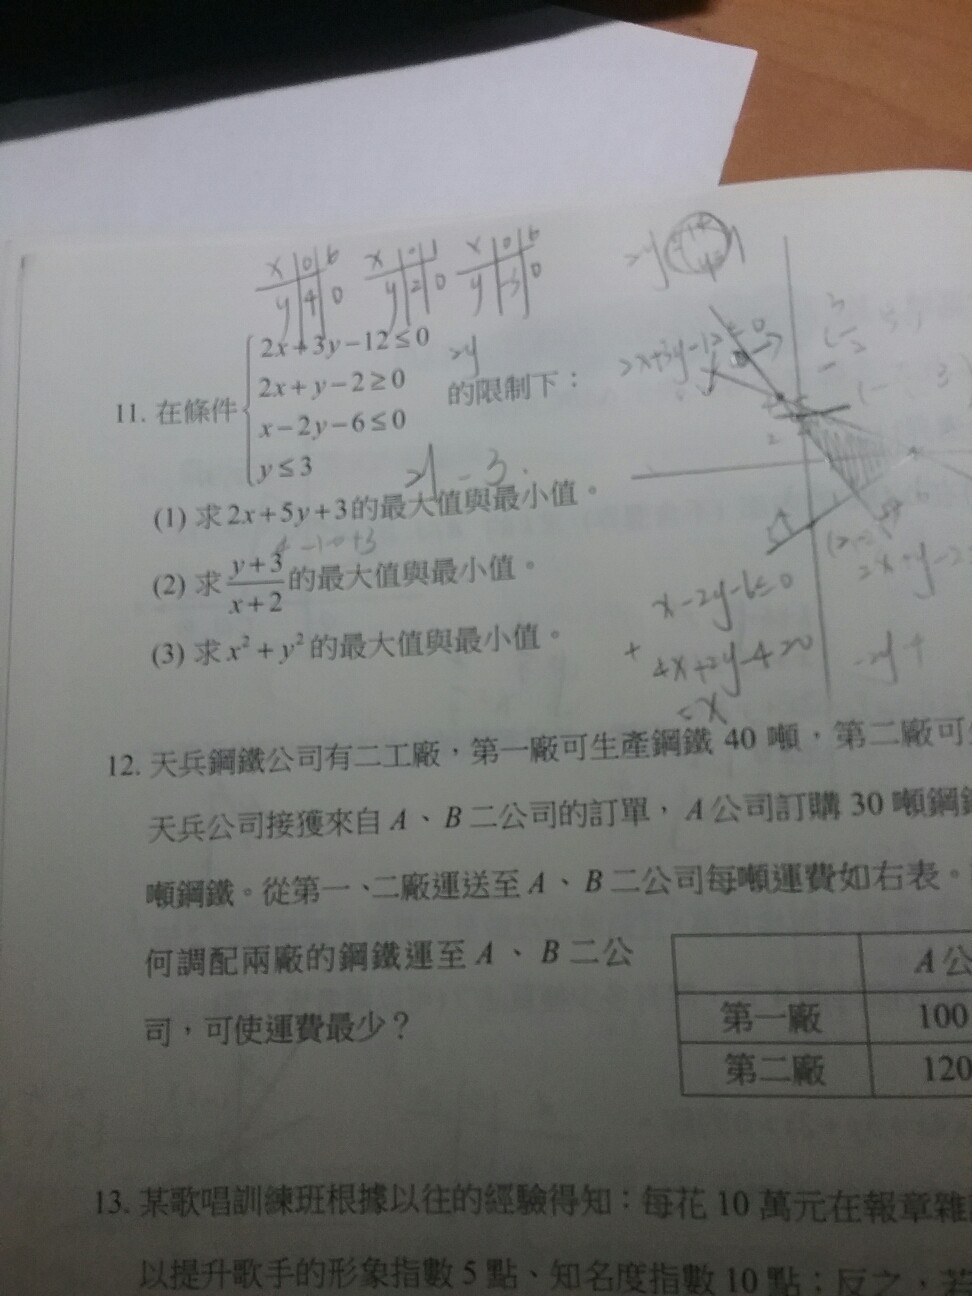 x 0 6
y 4 0
x 0 1
y 2 0
x 0 6
y -3 0
11. 在條件
2x+3y−12≤0
2x+y−2≥0
x−2y−6≤0
y≤3
的限制下：
(1) 求2x+5y+3的最大值與最小值。
4 -10 +3
(2) 求 y+3/x+2 的最大值與最小值。
(3) 求x²+y²的最大值與最小值。
x-2y-6≤0
+ 4x+2y-4≥0
12. 天兵鋼鐵公司有二工廠，第一廠可生產鋼鐵 40 噸，第二廠可
天兵公司接獲來自 A、B 二公司的訂單，A 公司訂購 30 噸鋼
噸鋼鐵。從第一、二廠運送至 A、B 二公司每噸運費如右表。
何調配兩廠的鋼鐵運至 A、B 二公
司，可使運費最少？
A 公
第一廠 100
第二廠 120
13. 某歌唱訓練班根據以往的經驗得知：每花 10 萬元在報章雜
以提升歌手的形象指數 5 點、知名度指數 10 點；反之，若